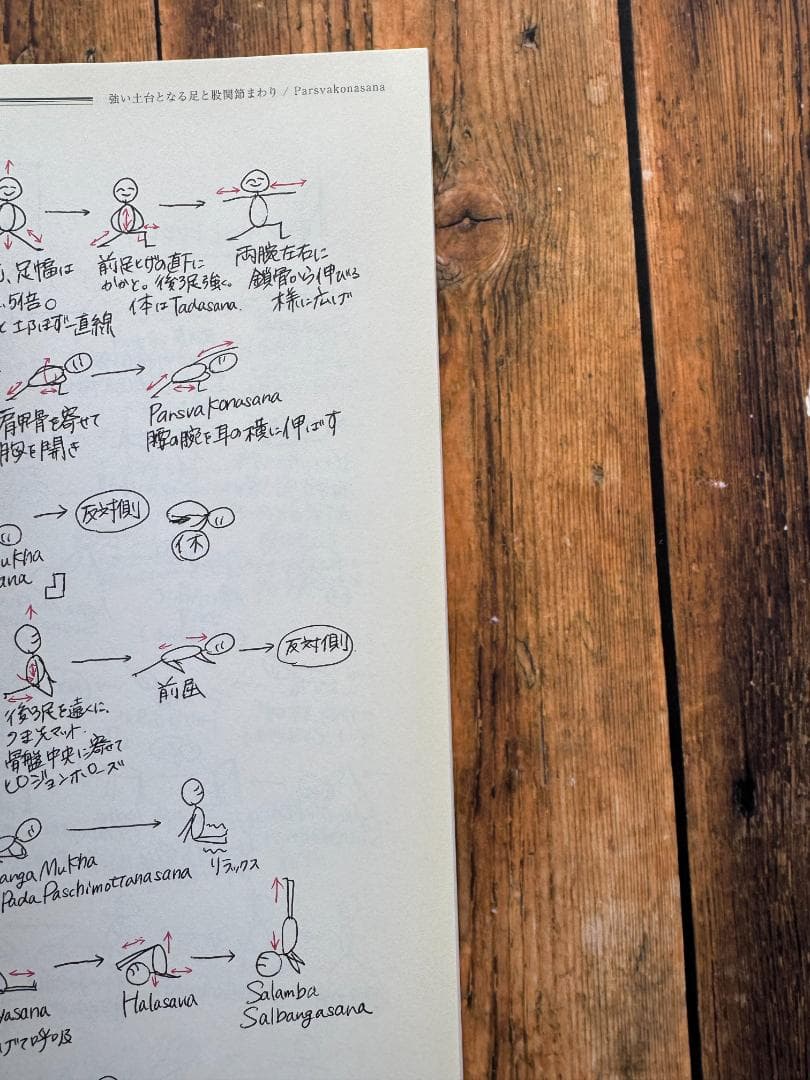 強い土台となる足と股関節まわり / Parsvakonasana
、足幅は
.5倍。
直線
前足ヒザの直下に
かかと。後ろ足強く。
体はTadasana.
両腕左右に
鎖骨から伸びる
様に広げ
肩甲骨を寄せて
胸を開き
Parsvakonasana
腰の腕を耳の横に伸ばす
反対側
休
ukha
ana
後ろ足を遠くに、
つま先マット.
骨盤中央に寄せて
ピジョンポーズ
前屈
反対側
anga Mukha
Pada Paschimottanasana
リラックス
yasana
げて呼吸
Halasana
Salamba
Salbangasana